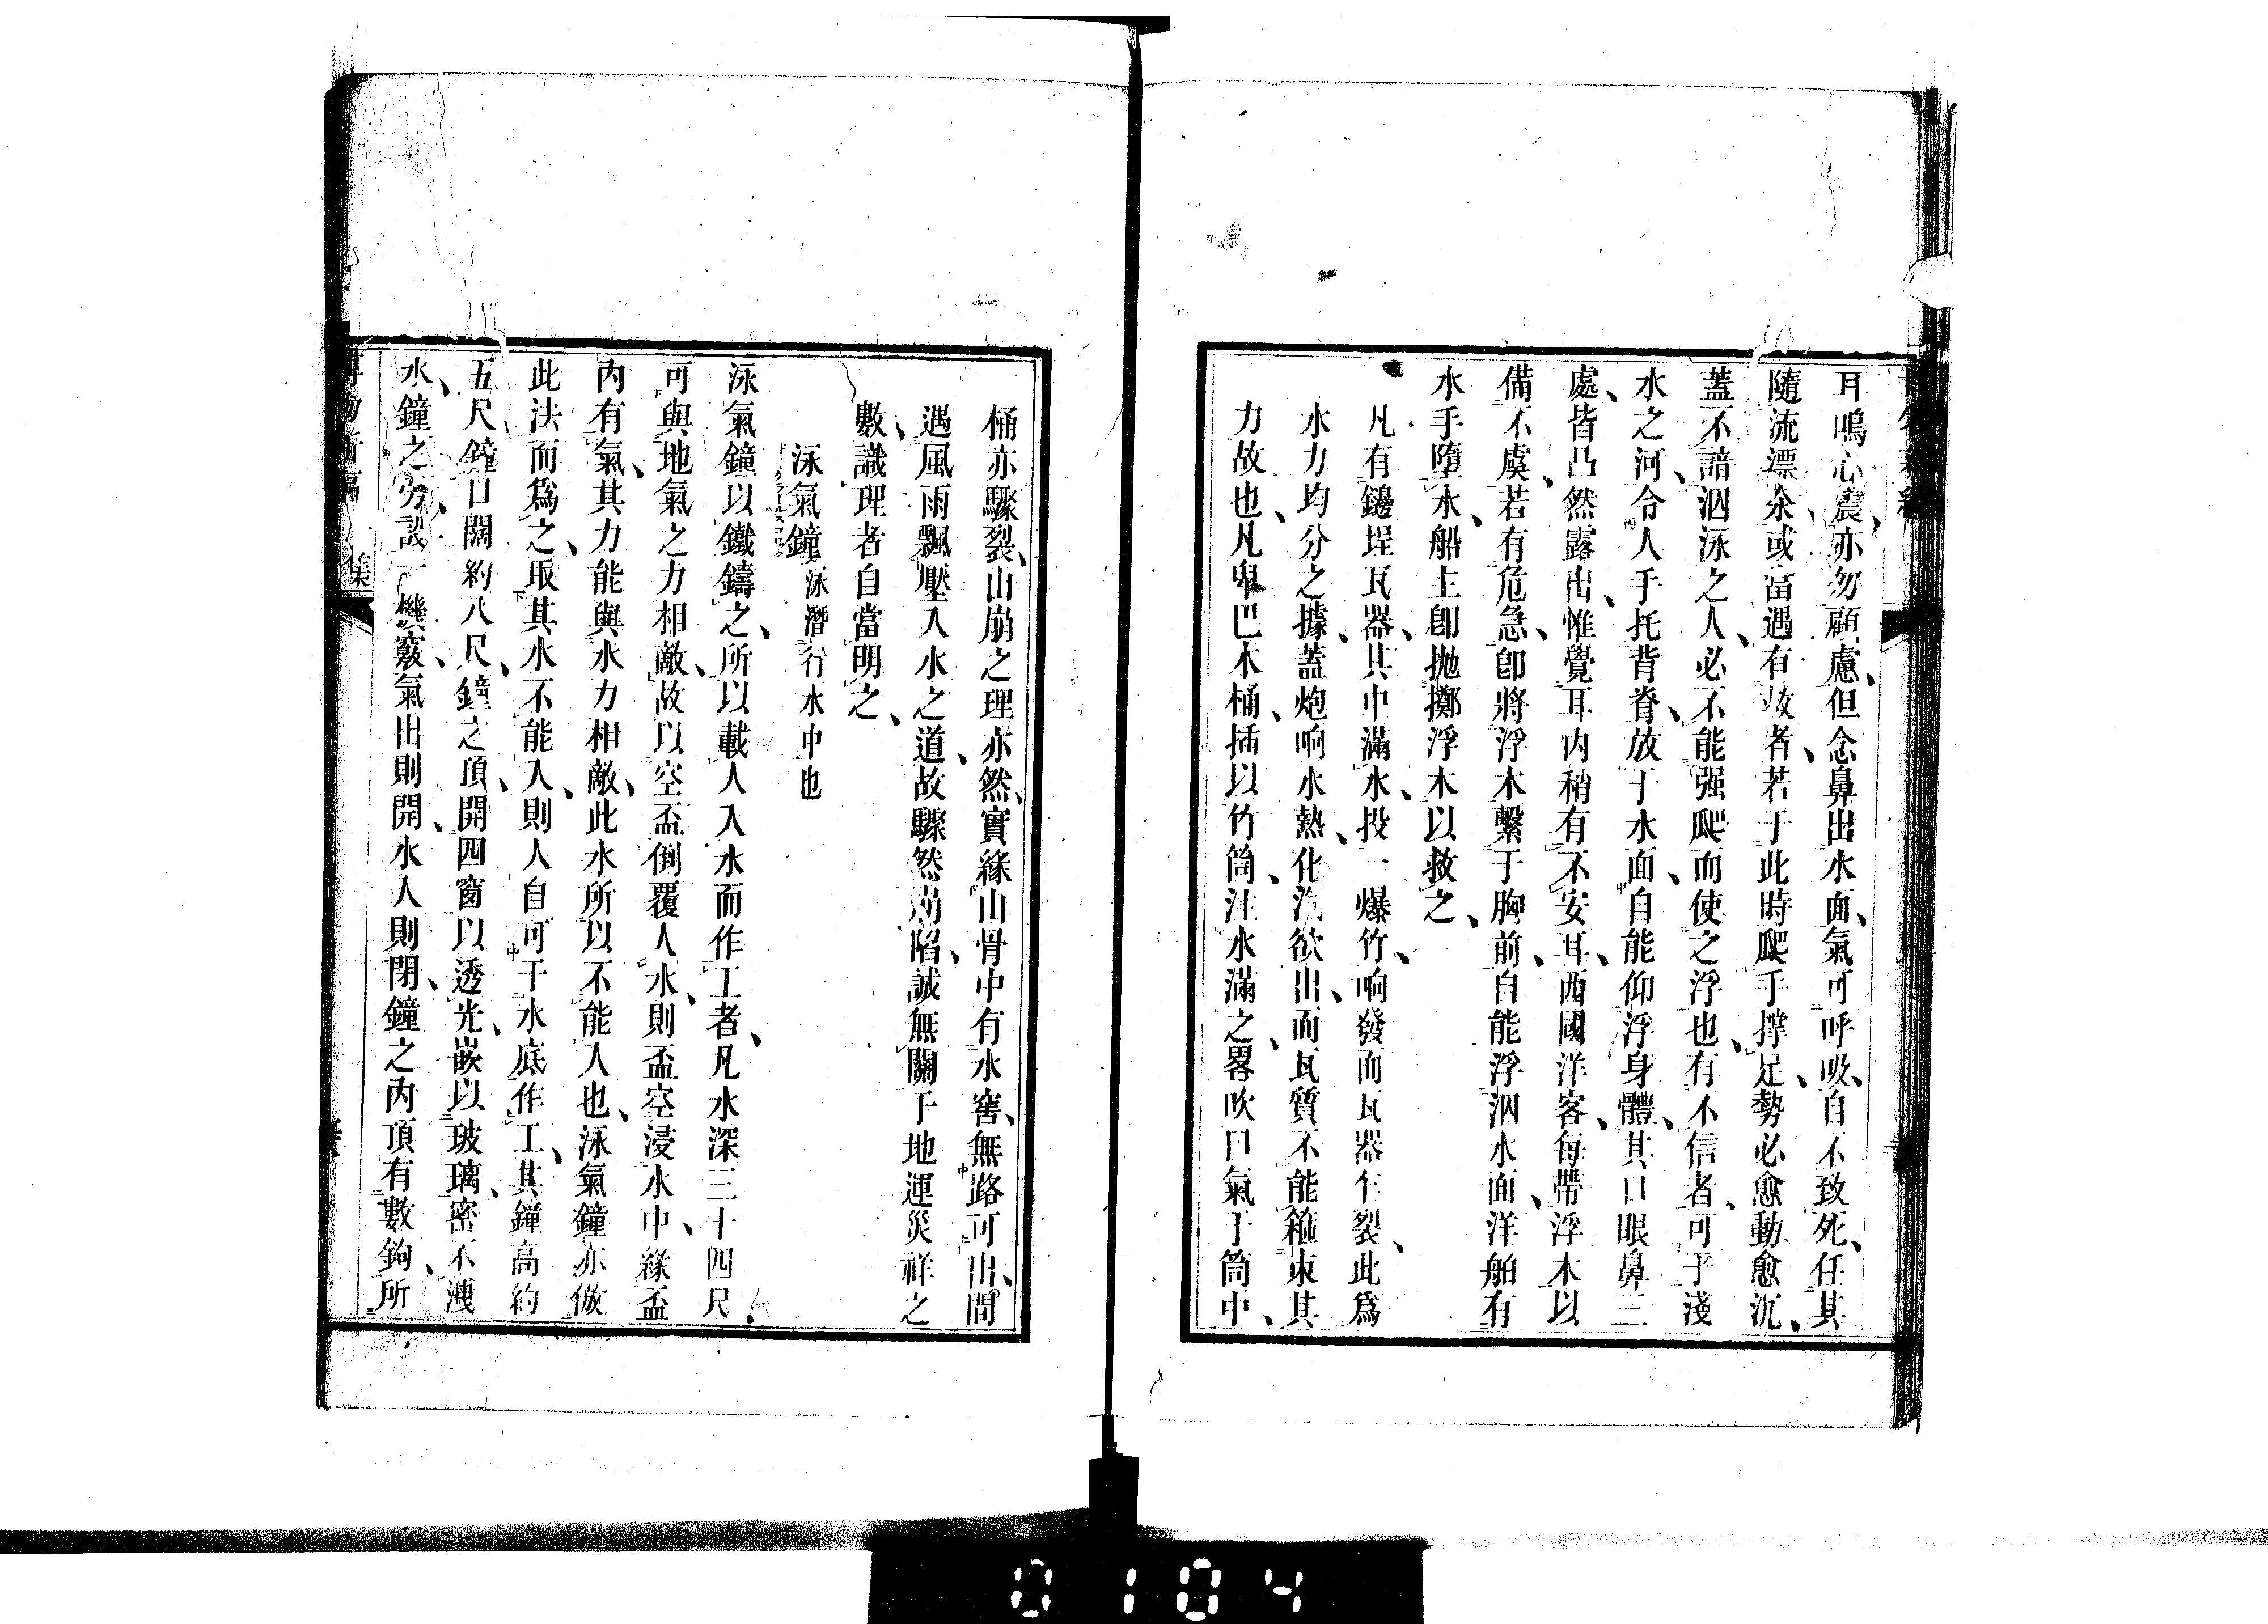 耳鳴心震、亦勿顧慮、但念鼻出水面、氣可呼吸、自不致死、任其
隨流漂氽、或當遇有救者、若于此時爬手撐足、勢必愈動愈沉、
蓋不諳泅泳之人、必不能强爬而使之浮也、有不信者、可于淺
水之河、令人手托背脊、放于水面、自能仰浮身體、其口眼鼻三
處、皆凸然露出、惟覺耳內稍有不安耳、西國洋客、每帶浮木以
備不虞、若有危急、卽將浮木繫于胸前、自能浮泅水面、洋舶有
水手墮水、船主卽拋擲浮木以救之、
凡有鐘埕瓦器、其中滿水、投一爆竹、响發而瓦器乍裂、此爲
水力均分之據、蓋炮响水熱、化汽欲出、而瓦質不能箍束其
力故也、凡卑巴木桶、插以竹筒、注水滿之、畧吹口氣于筒中、
桶亦驟裂、山崩之理亦然、實緣山骨中有水窖、無路可出、間
遇風雨飄壓入水之道、故驟然崩陷、誠無關于地運災祥之
數、識理者自當明之、
泳氣鐘 泳潛行水中也
泳氣鐘以鐵鑄之、所以載人入水而作工者、凡水深三十四尺、
可與地氣之力相敵、故以空盃倒覆入水、則盃空浸水中、緣盃
內有氣、其力能與水力相敵、此水所以不能入也、泳氣鐘亦倣
此法而爲之、取其水不能入、則人自可于水底作工、其鐘高約
五尺、鐘口闊約八尺、鐘之頂、開四窗以透光、嵌以玻璃、密不洩
水、鐘之旁、設一機竅、氣出則開、水入則閉、鐘之內頂有數鉤、所
集
0104